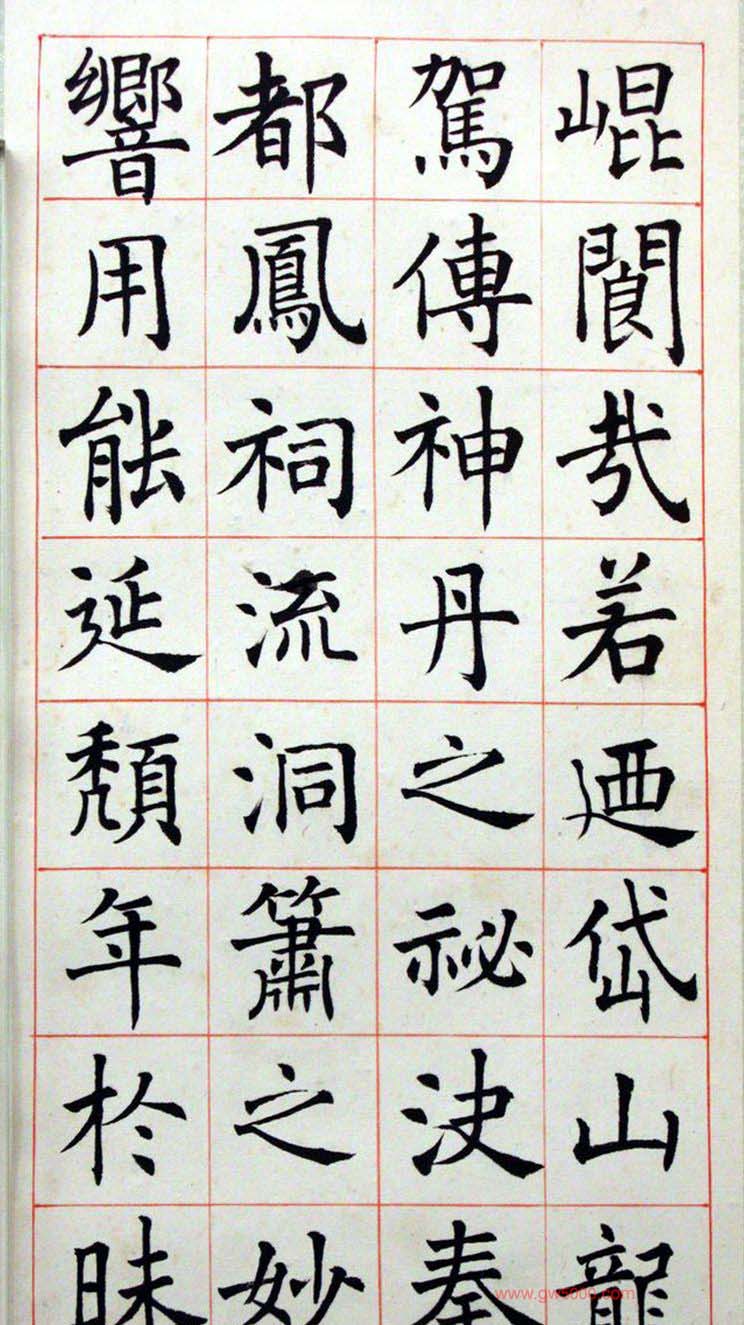 崐閬哉若迺岱山龍
駕傳神丹之祕決奏
都鳳祠流洞簫之妙
響用能延頹年於昧
www.gw5000.com